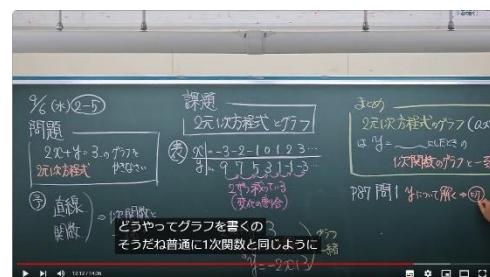 9/6 (水) 2-5
問題
2x+y=3のグラフを
かきなさい
2元1次方程式
予 直線
関数
1次関数と
課題
2元1次方程式とグラフ
表 x -3 -2 -1 0 1 2 3 …
y 9 7 5 3 1 -1 -3 …
2ずつ減っている
(変化の割合)
グラフ
一緒
y=-2x+3
まとめ
2元1次方程式のグラフ (ax
は y=
にしたときの
1次関数のグラフと一
P87 問1 yについて解く→
どうやってグラフを書くの
そうだね普通に1次関数と同じように
12:12 / 14:36